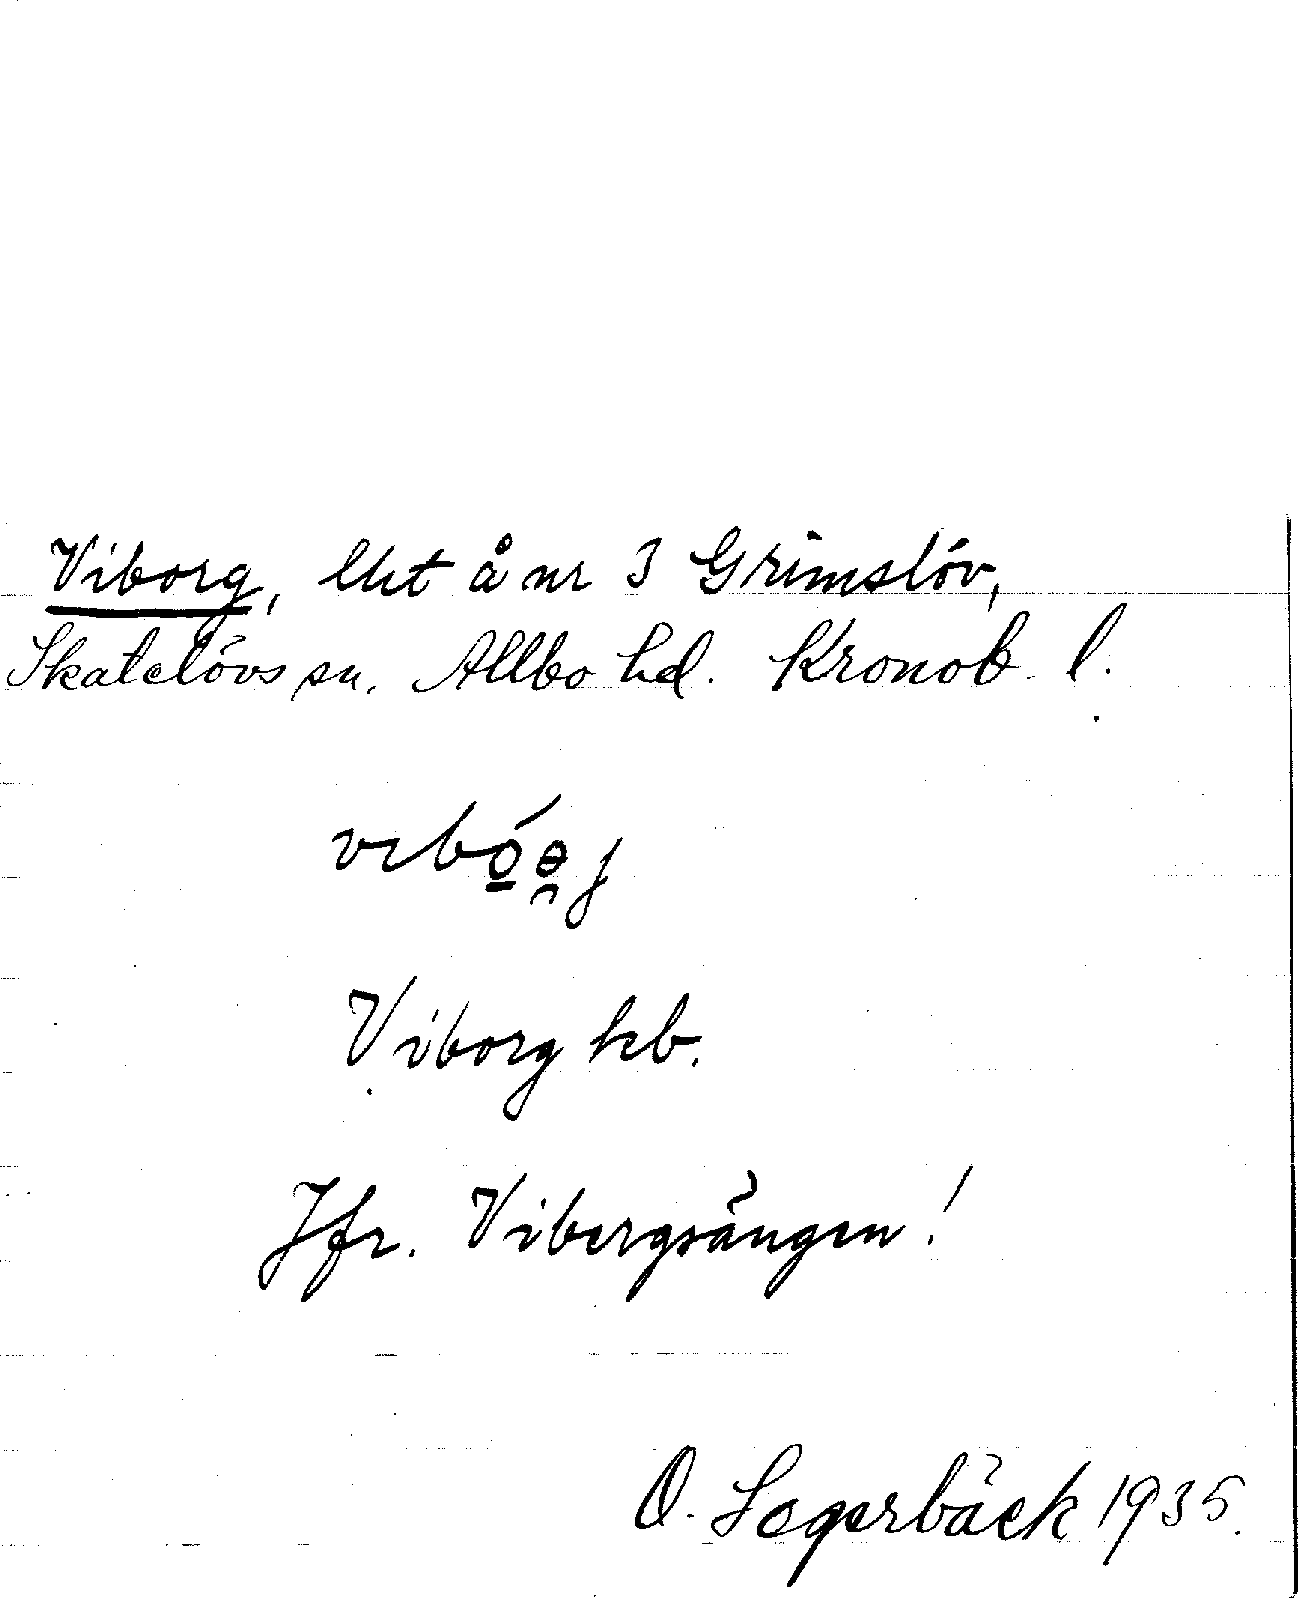 Viborg, lht å nr 3 Grimslöv,
Skatelövs sn. Allbo hd. Kronob. l.
Viborg hb.
Jfr. Vibergsängen!
O. Sagerbäck 1935.